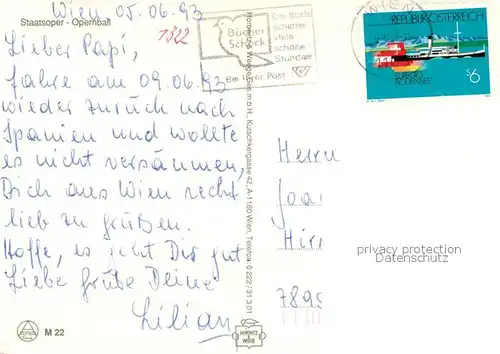 Wien 05.06.93
Staatsoper - Opernball
1322
Lieber Papi,
fahre am 09.06.93
wieder zurück nach
Spanien und wollte
es nicht versäumen,
Dich aus Wien recht
lieb zu grüßen.
Hoffe, es geht Dir gut
Liebe Grüße Deine
Lilian
M 22
Bücher
Scheck
Ein Buch
schenkt
viele
schöne
Stunden
Bei Ihrer Post
WIEN
REPUBLIK ÖSTERREICH
EUREGIO
BODENSEE
S6
Kutschkergasse 42, A-1180 Wien, Telefon 0 222 / 31 3 01
HOROWITZ
&
WEEGE
Herrn
Joa
Hir
7895
privacy protection
Datenschutz